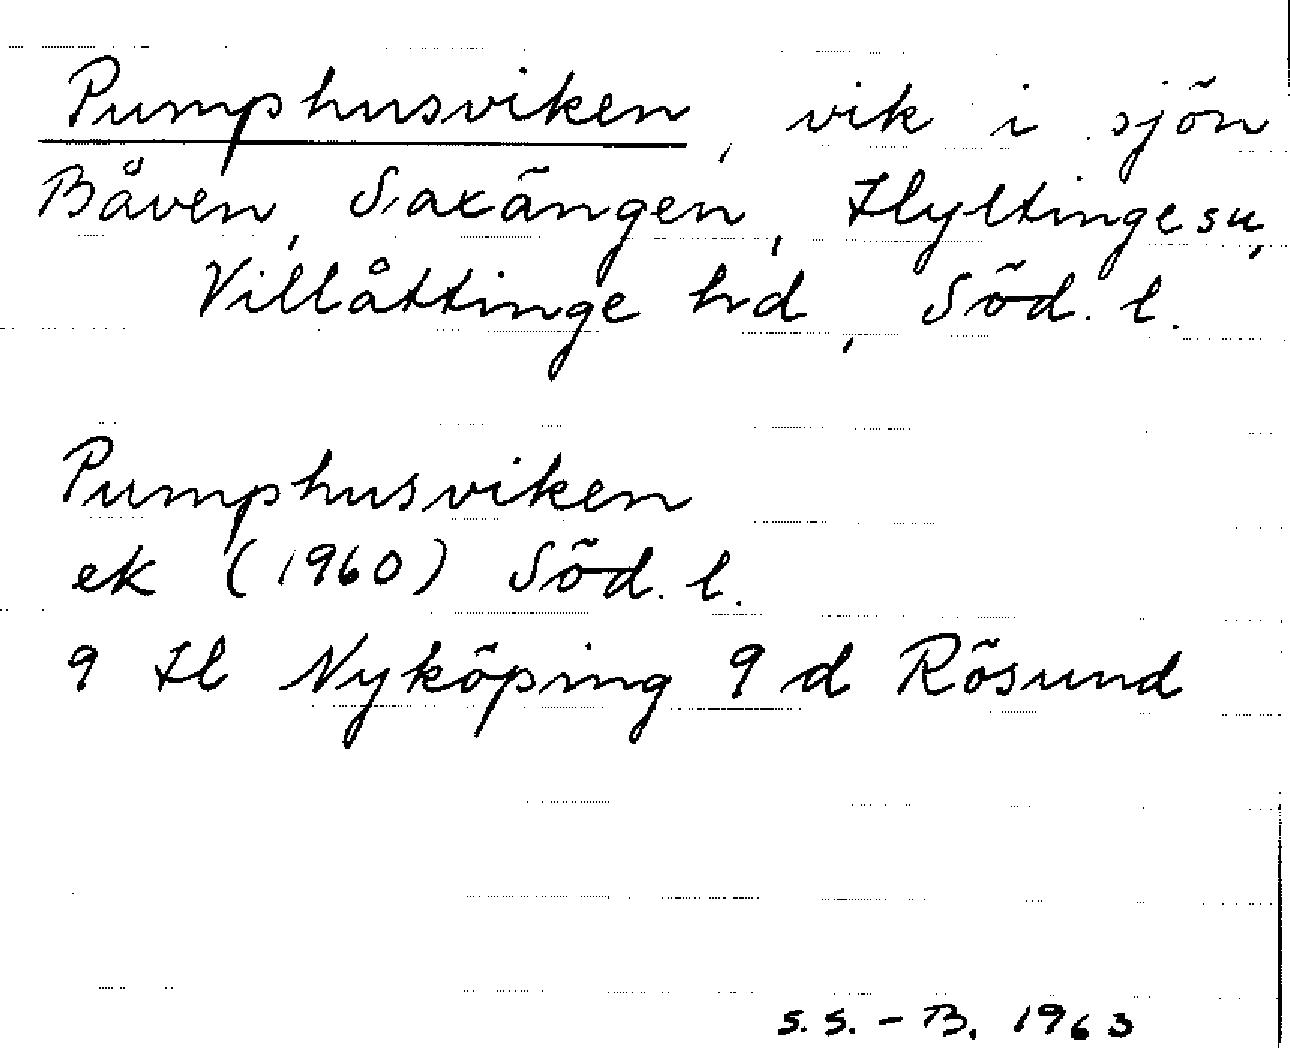 Pumphusviken, vik i sjön
Båven, Saxängen, Hyltinge sn,
Villåttinge hd, Söd. l.
Pumphusviken
ek (1960) Söd. l.
9 H Nyköping 9 d Rösund
S.S.-B. 1963